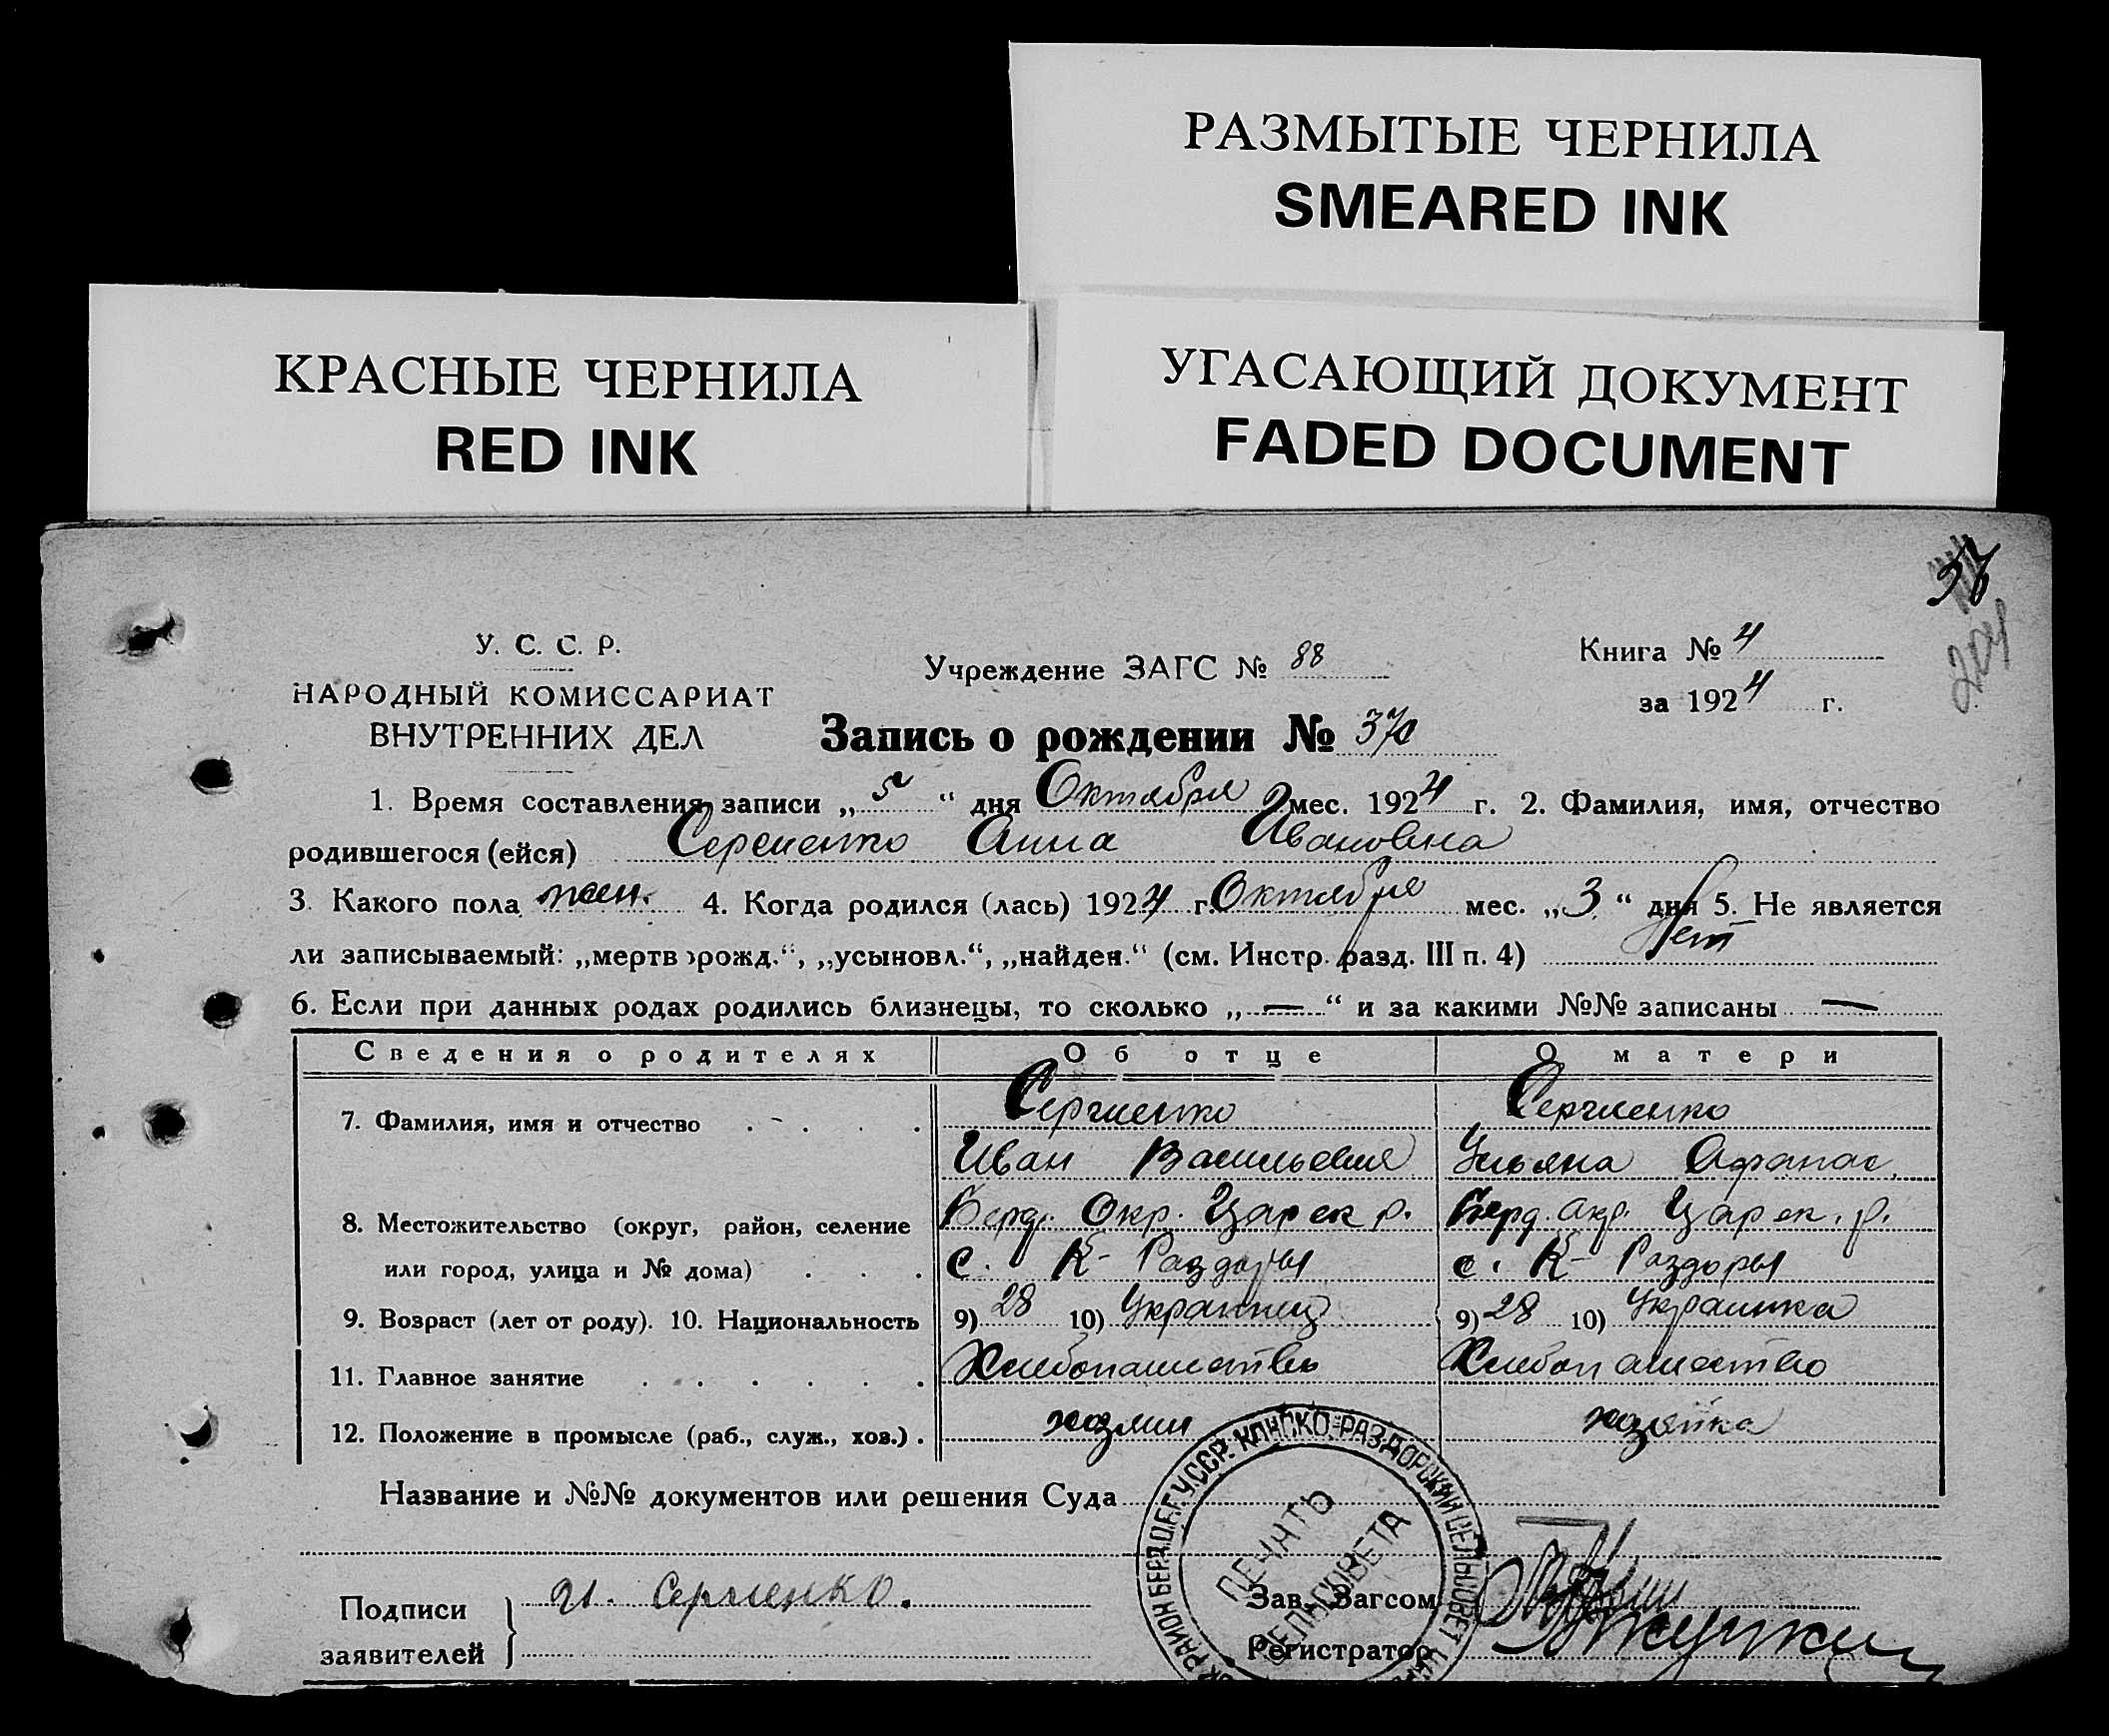 РАЗМЫТЫЕ ЧЕРНИЛА
SMEARED INK
КРАСНЫЕ ЧЕРНИЛА
RED INK
УГАСАЮЩИЙ ДОКУМЕНТ
FADED DOCUMENT
У. С. С. Р.
НАРОДНЫЙ КОМИССАРИАТ
ВНУТРЕННИХ ДЕЛ
Учреждение ЗАГС № 88
Книга № 4
за 1924 г.
Запись о рождении № 370
1. Время составления записи „5“ дня Октября мес. 1924 г. 2. Фамилия, имя, отчество
родившегося (ейся) Сергиенко Анна Ивановна
3. Какого пола жен. 4. Когда родился (лась) 1924 г. Октября мес. „3“ дня 5. Не является
ли записываемый: „мертворожд.“, „усыновл.“, „найден.“ (см. Инстр. разд. III п. 4) Нет
6. Если при данных родах родились близнецы, то сколько „—“ и за какими №№ записаны —
Сведения о родителях Об отце О матери
7. Фамилия, имя и отчество Сергиенко Сергиенко
Иван Васильевич Ульяна Афанас.
8. Местожительство (округ, район, селение Берд. Окр. Царек р. Берд. окр. Царек. р.
или город, улица и № дома) с. К- Раздоры с. К- Раздоры
9. Возраст (лет от роду). 10. Национальность 9) 28 10) Украинец 9) 28 10) Украинка
11. Главное занятие Хлебопашество Хлебопашество
12. Положение в промысле (раб., служ., хоз.) хозяин хозяйка
Название и №№ документов или решения Суда
Подписи
заявителей
И. Сергиенко.
Зав. Загсом
Регистратор
ПЕЧАТЬ
СЕЛЬСОВЕТА